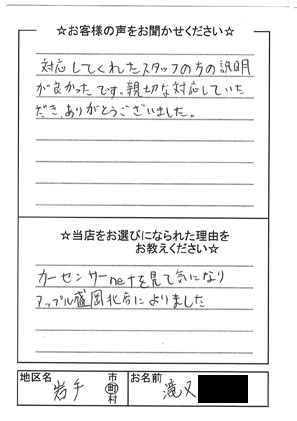 ☆お客様の声をお聞かせください☆
対応してくれたスタッフの方の説明
が良かったです。親切な対応していた
だき、ありがとうございました。
☆当店をお選びになられた理由を
お教えください☆
カーセンサーnetを見て気になり
アップル盛岡北店によりました
地区名 岩手 市町村 お名前 滝又